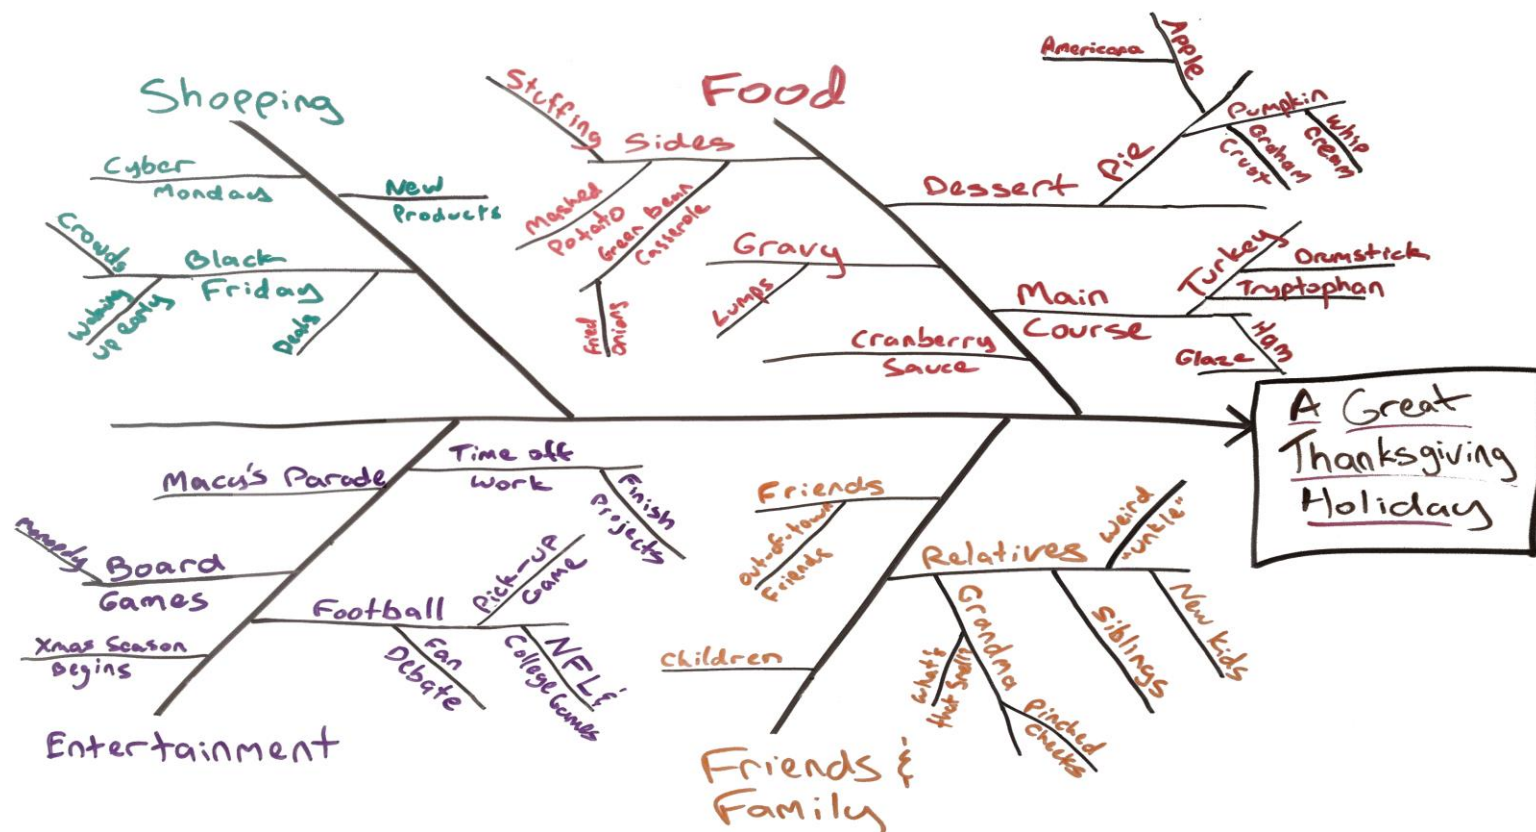 Shopping
Cyber
Mondays
New
Products
Crowds
Black
Friday
Waking
up early
Deals
Food
Stuffing
Sides
Mashed
Potato
Green bean
Casserole
Fried
Onions
Gravy
Lumps
Cranberry
Sauce
Dessert
Pie
Apple
Americana
Pumpkin
Graham
Crust
Whip
Cream
Main
Course
Turkey
Drumstick
Tryptophan
Ham
Glaze
A Great
Thanksgiving
Holiday
Entertainment
Time off
Work
Finish
Projects
Macy's Parade
Board
Games
Monopoly
Football
Pick-up
Game
Fan
Debate
NFL &
College Games
Xmas Season
Begins
Friends &
Family
Friends
out-of-town
Friends
Relatives
Weird
"unkle"
Grandma
What's
that smell
Pinched
Cheeks
Siblings
New kids
Children